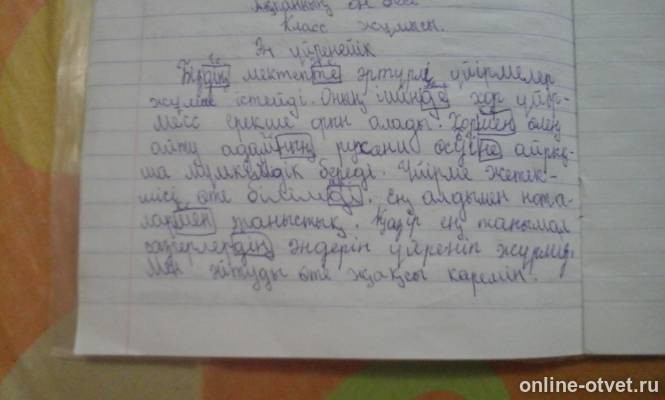 Класс жұмысы.
Ән үйренейік
Біздің мектепте әртүрлі үйірмелер
жұмыс істейді. Оның ішінде хор үйір-
месі ерекше орын алады. Хормен өлең
айту адамның рухани өсуіне айрық-
ша мүмкіндік береді. Үйірме жетек-
шісі өте білімді. Ең алдымен нота-
лармен таныстық. Қазір ең танымал
әндерін үйреніп жүрміз.
Мен ән айтуды өте жақсы көремін.
online-otvet.ru